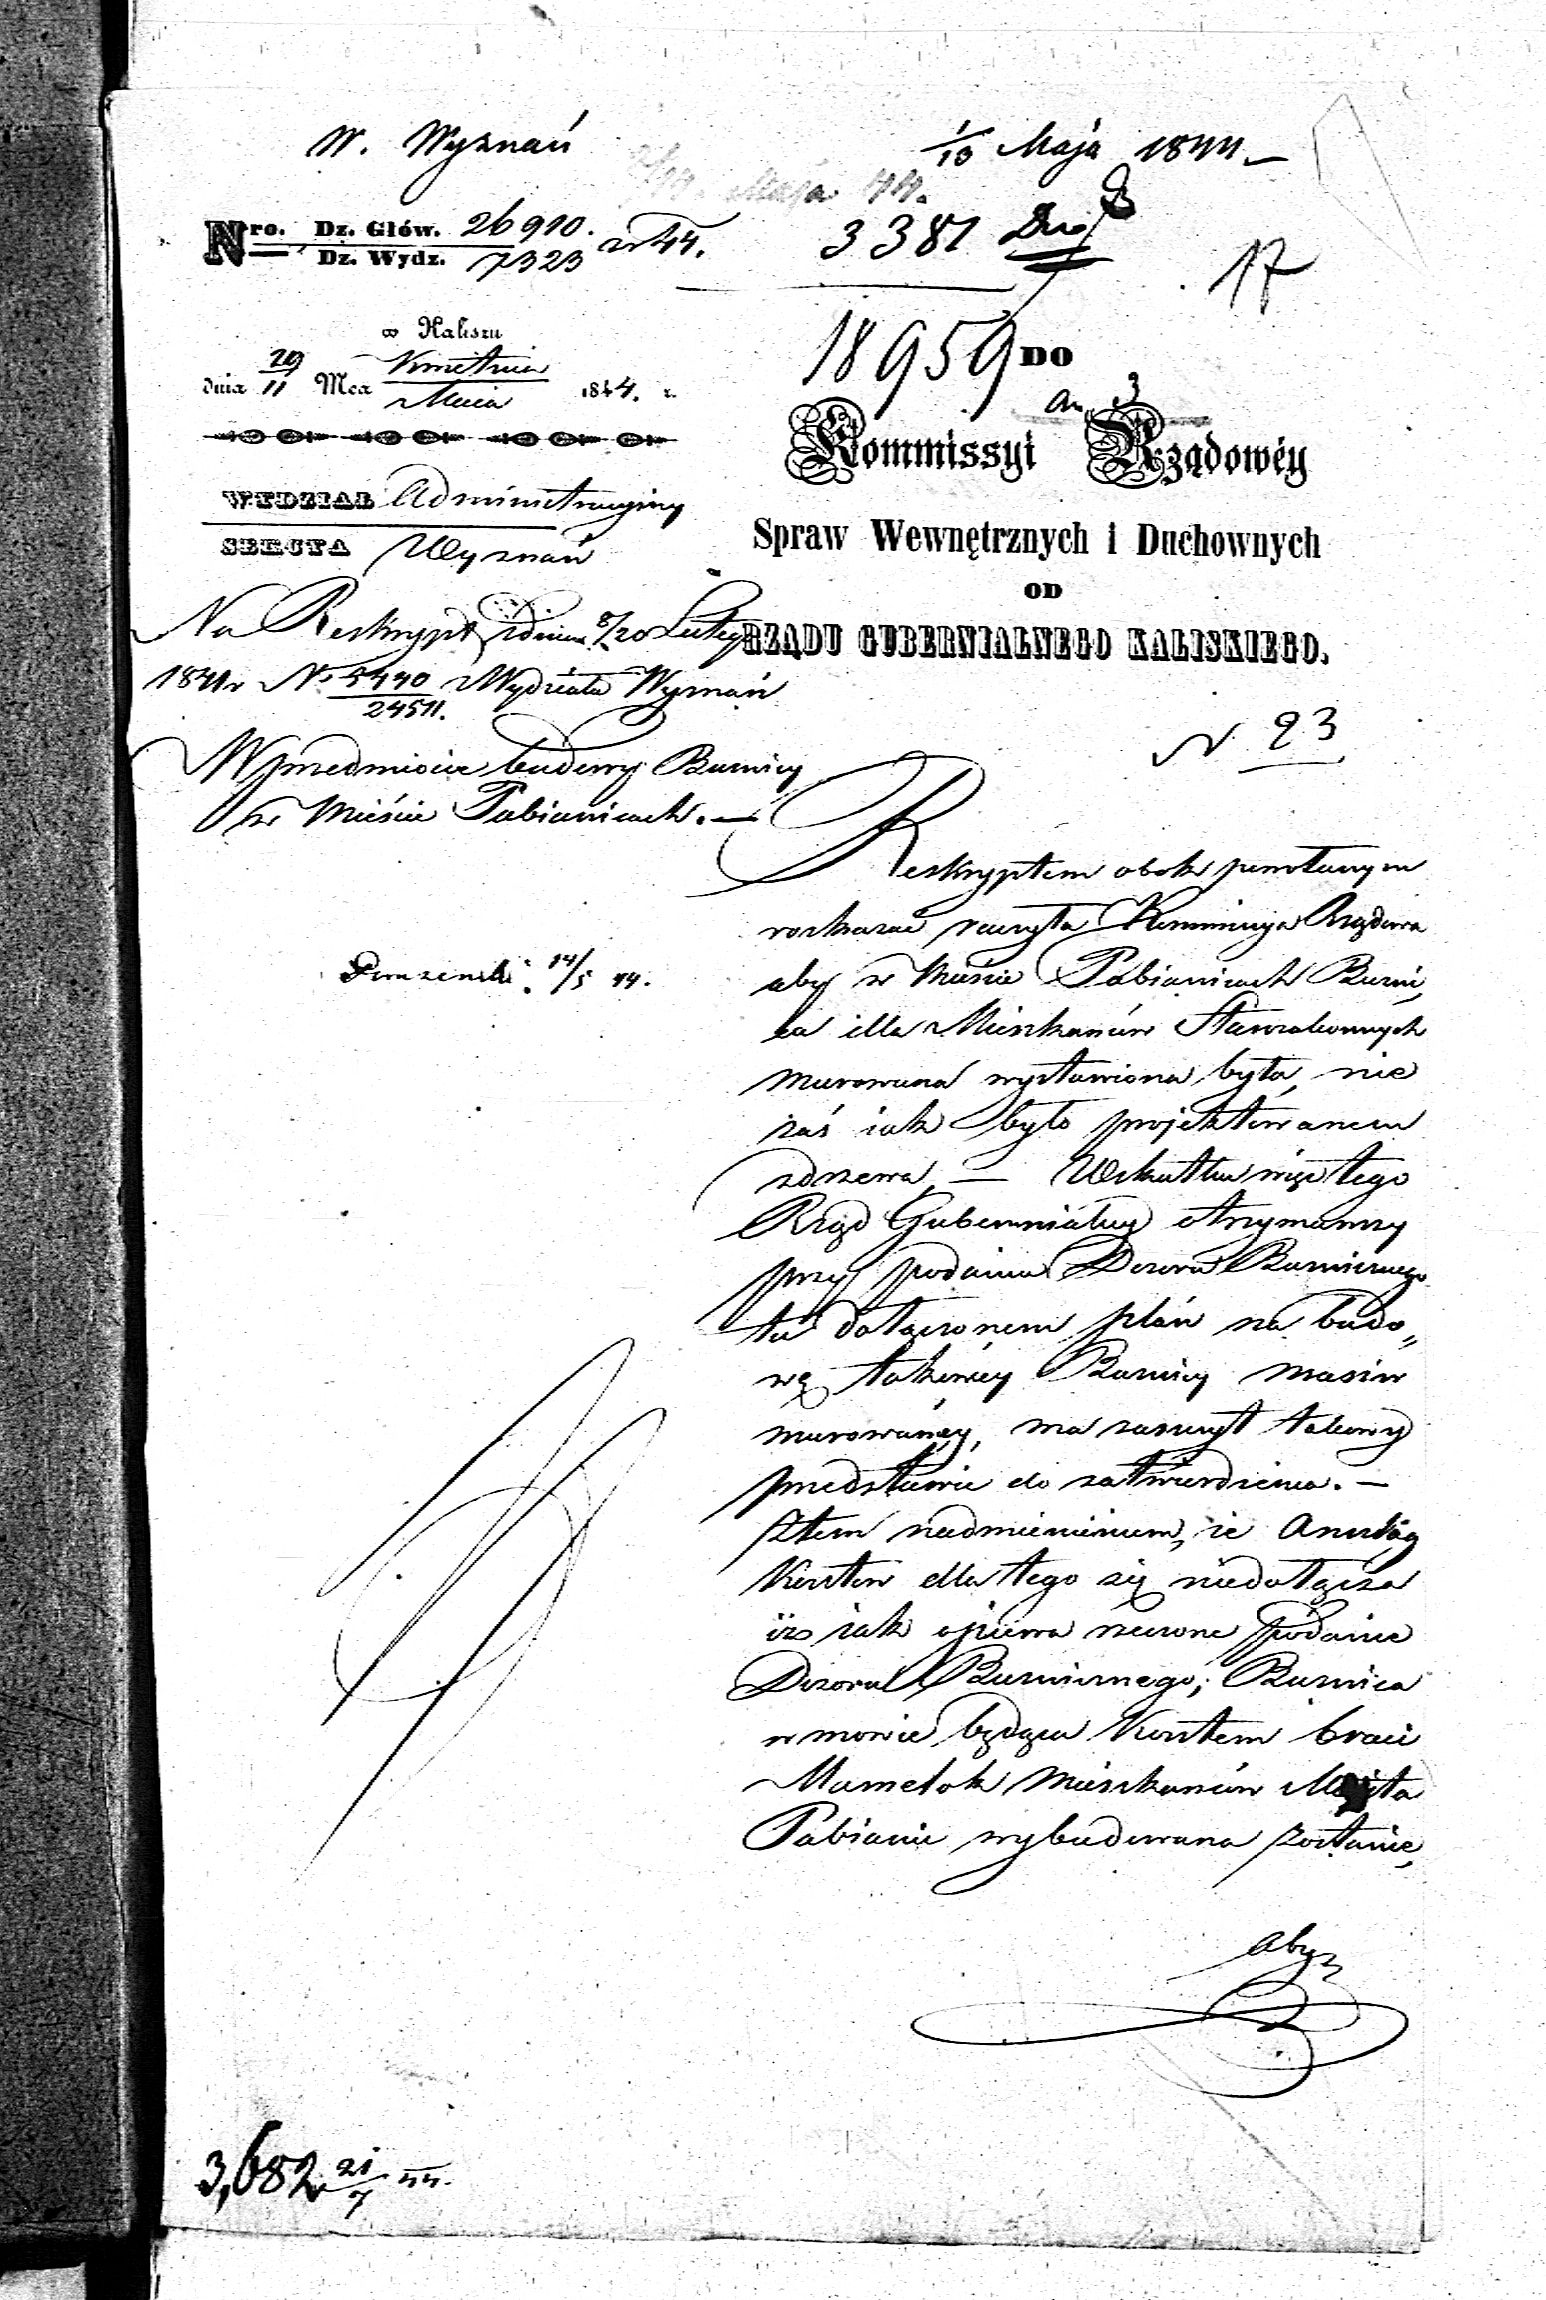 W. Wyznań
1/13 Maja 1844
Maja 44.
Nro. Dz. Głów. 26910.
Dz. Wydz. 7323
z r 44.
3381
17
w Kaliszu
dnia 29/11 Mca Kwietnia/Maia 1844. r.
18959
DO
an. 3
Kommissyi Rządowéy
Spraw Wewnętrznych i Duchownych
OD
RZĄDU GUBERNIALNEGO KALISKIEGO.
WYDZIAŁ Administracyiny
SEKCYA Wyznań
Na Reskrypt z dnia 8/20 Lutego
1841 r N. 5440/24511. Wydziału Wyznań
W przedmiocie budowy Buznicy
w Mieście Pabianicach. —
N 23
Reskryptem obok powołanym
rozkazać raczyła Kommissya Rządowa
aby w Mieście Pabianicach Buzni„
ca dla Mieszkańców Starozakonnych
murowana wystawiona była, nie
zaś iak było projektowanem
z drzewa, — W skutku więc tego
Rząd Gubernialny otrzymawszy
przy podaniu Dozoru Bużniczego
tu dołączonem plan na budo„
wę takowéy Buznicy masiw
murowanéy, ma zaszczyt takowy
przedstawić do zatwierdzenia. —
Ztem nadmienieniem, że Anszlag
Kosztów dla tego się niedołącza
iż iak opiewa rzeczone podanie
Dozoru Bużnicznego, Buznica
w mowie będąca Kosztem braci
Mamelok Mieszkańców Miasta
Pabianic wybudowana zostanie,
aby
14/5 44.
3,682 21/7 44.